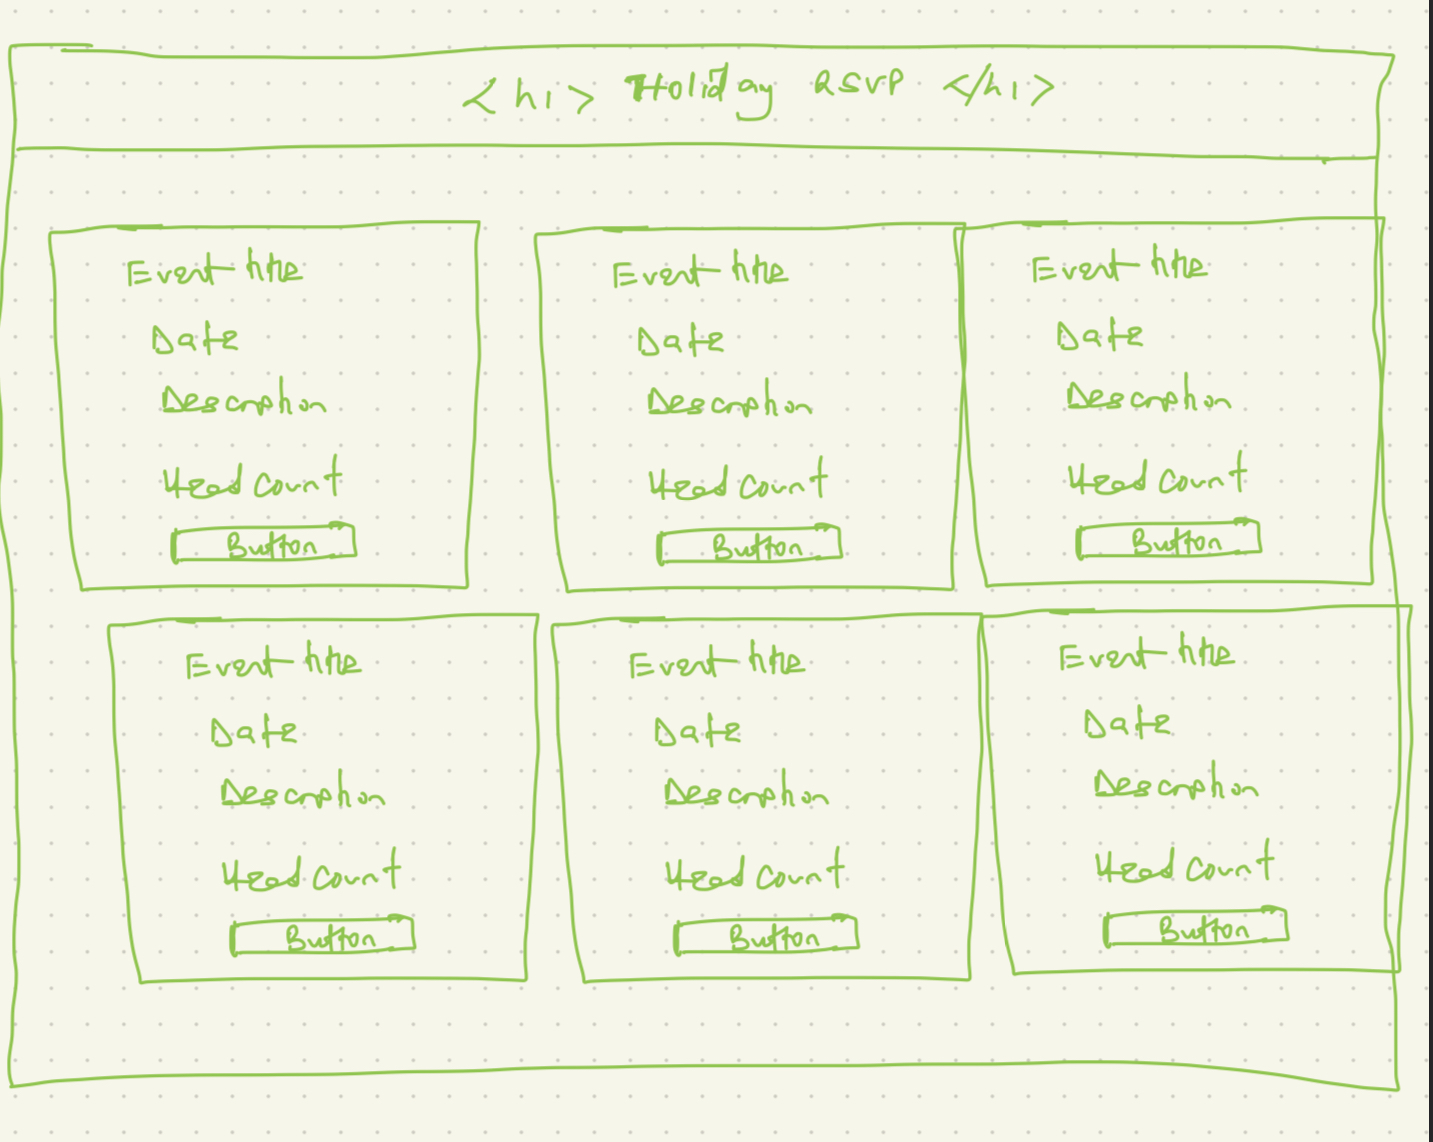 <h1> Holiday RSVP </h1>
Event title
Date
Description
Head count
Button
Event title
Date
Description
Head count
Button
Event title
Date
Description
Head count
Button
Event title
Date
Description
Head count
Button
Event title
Date
Description
Head count
Button
Event title
Date
Description
Head count
Button